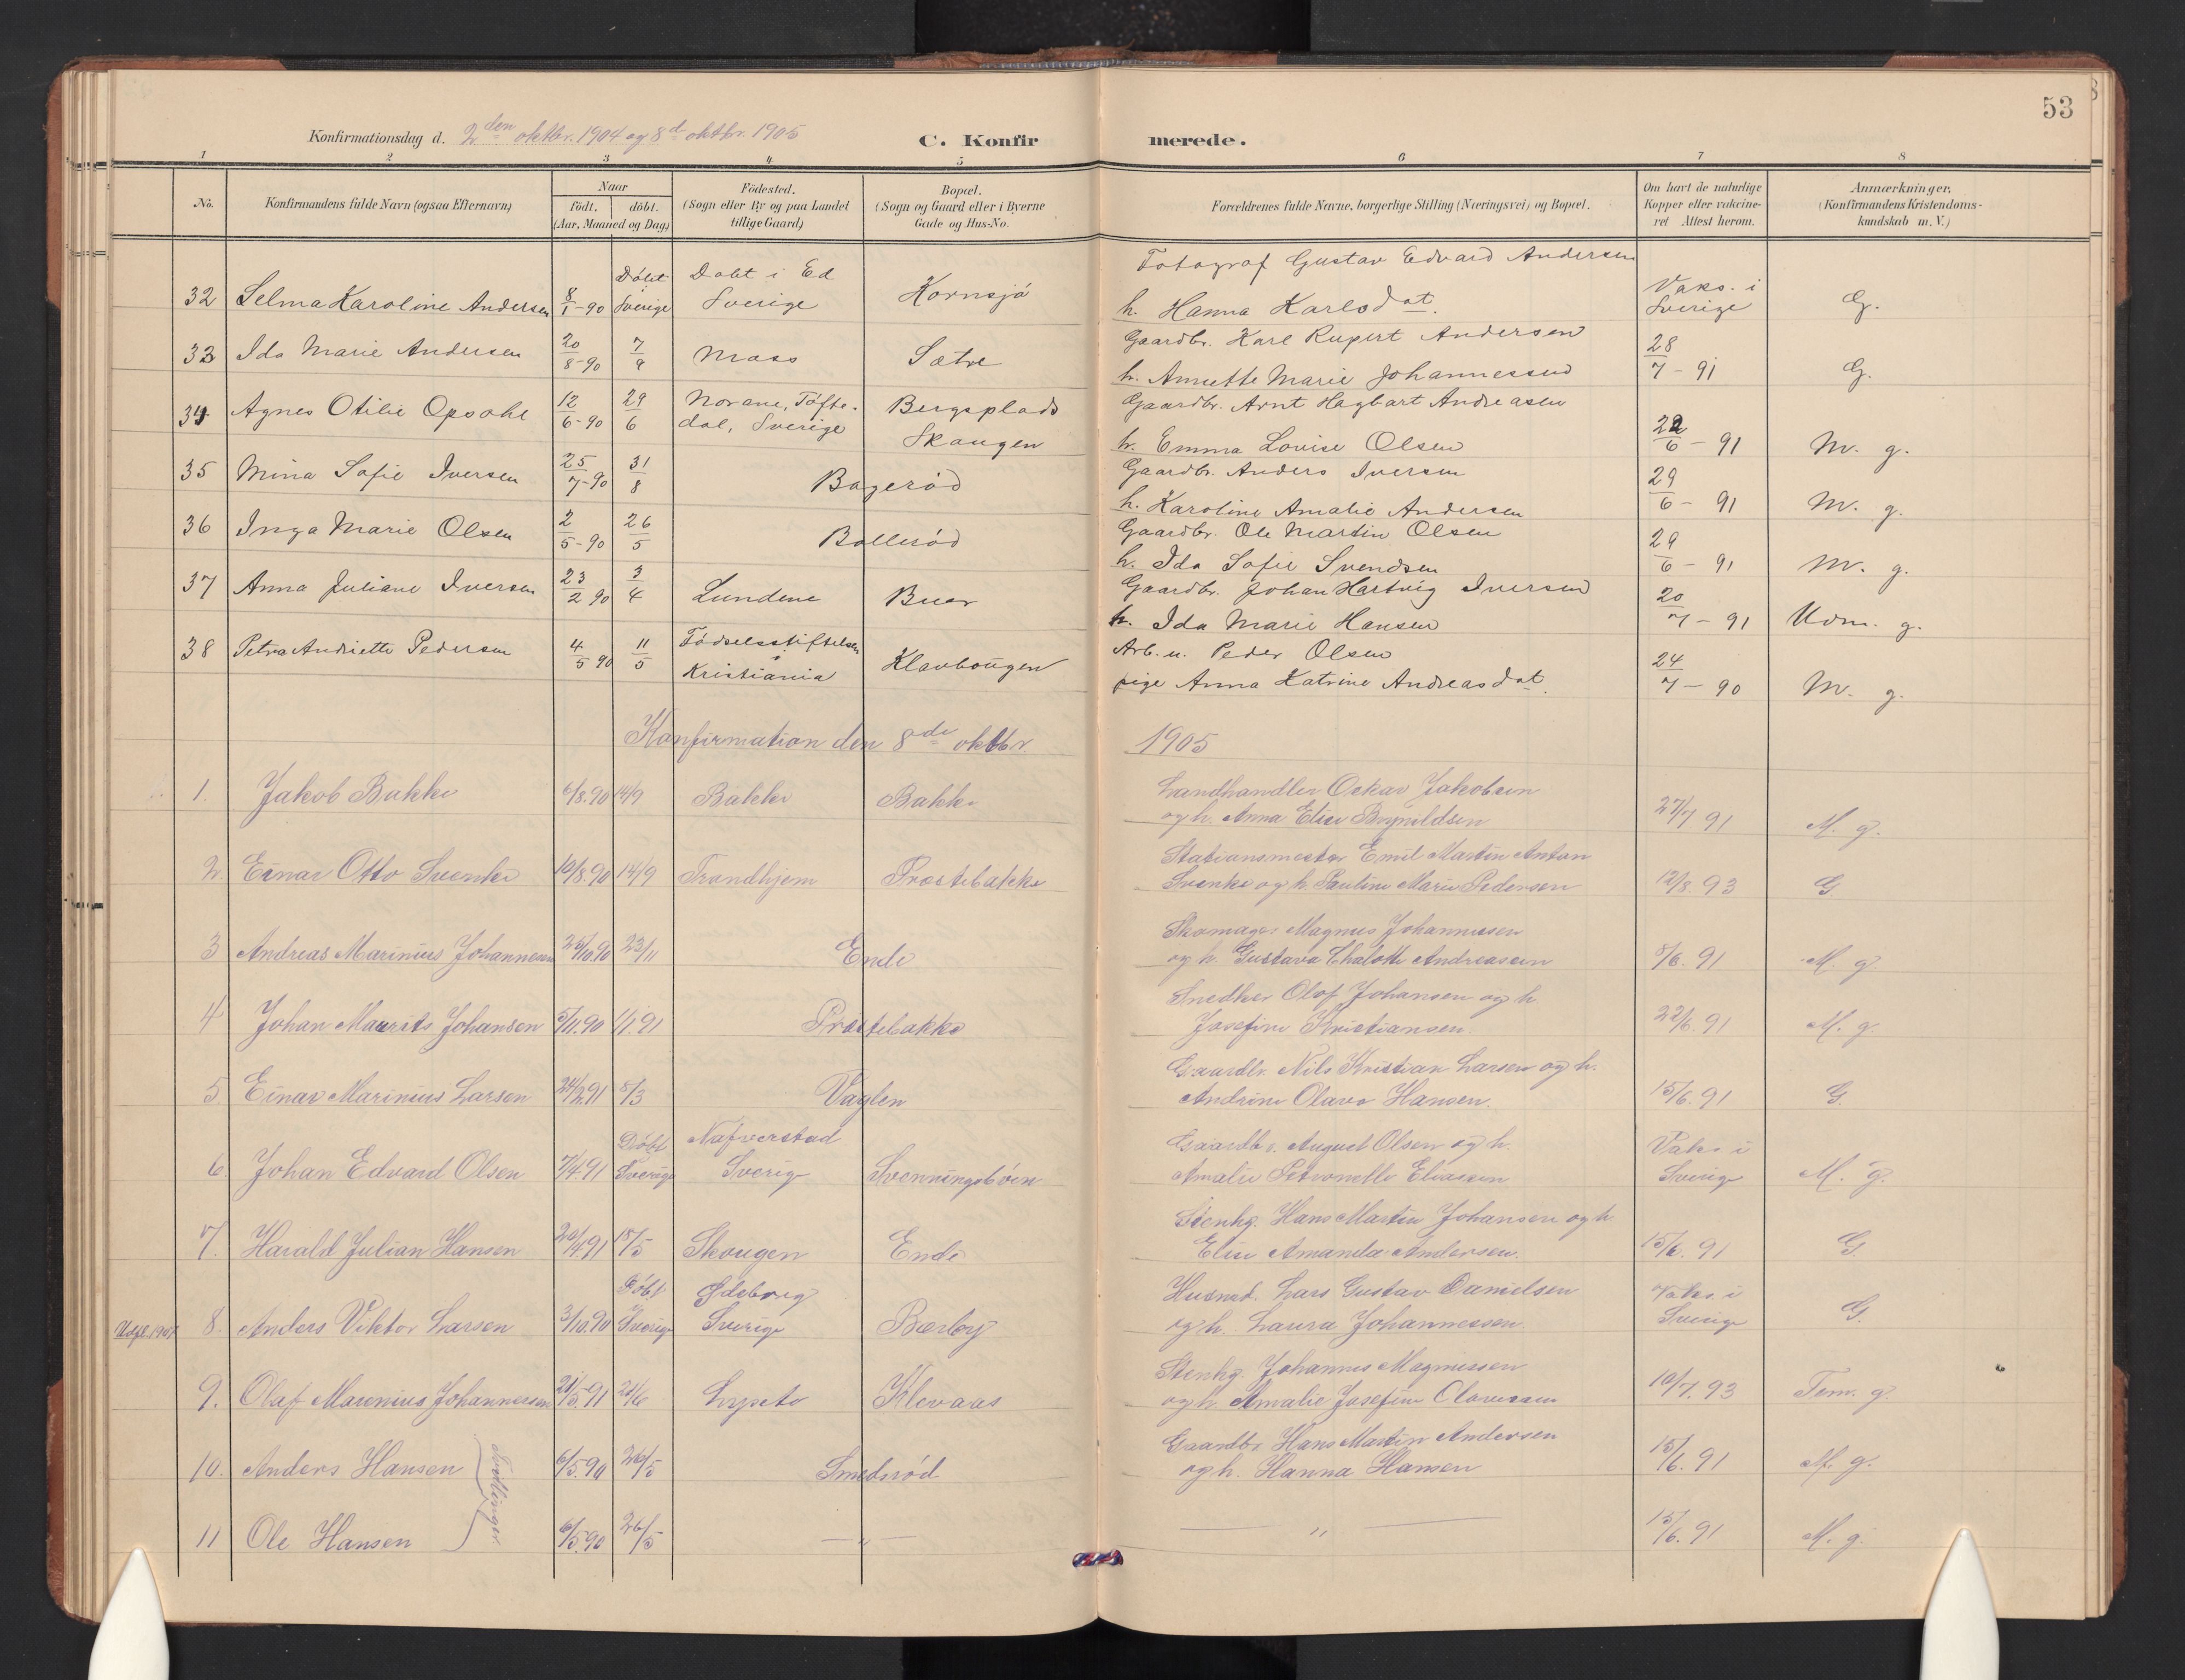 53
Konfirmationsdag d. 2den oktbr. 1904 og 8d oktbr. 1905
C. Konfirmerede.
1 2 3 4 5 6 7 8
No.
Konfirmandens fulde Navn (ogsaa Efternavn)
Naar
födt. döbt.
(Aar, Maaned og Dag)
Födested.
(Sogn eller By og paa Landet
tillige Gaard)
Bopæl.
(Sogn og Gaard eller i Byerne
Gade og Hus-No.
Forældrenes fulde Navne, borgerlige Stilling (Næringsvei) og Bopæl.
Om havt de naturlige
Kopper eller vakcine-
ret Attest herom.
Anmærkninger.
(Konfirmandens Kristendoms-
kundskab m. V.)
Döbt Döbt i Ed Fotograf Gustav Edvard Andersen Vaks. i
32 Selma Karoline Andersen 8/1-90 Sverige Sverige Kornsjö h. Hanna Karlsdat. Sverige G.
33 Ida Marie Andersen 20/8-90 7/9 Moss Sætre Gaardbr. Karl Rupert Andersen 28/7-91 G.
h. Annette Marie Johannessen
34 Agnes Otilie Opsahl 12/6-90 29/6 Norane, Töfte- Bergsplads Gaardbr. Arnt Hagbart Andreasen
dal, Sverige Skougen h. Emma Lovise Olsen 22/6-91 M. g.
35 Mina Sofie Iversen 25/7-90 31/8 Bagerød Gaardbr. Anders Iversen
h. Karoline Amalie Andersen 29/6-91 M. g.
36 Inga Marie Olsen 2/5-90 26/5 Bollerød Gaardbr. Ole Martin Olsen
h. Ida Sofie Svendsen 29/6-91 M. g.
37 Anna Juliane Iversen 23/2 90 3/4 Lundene Buer Gaardbr. Johan Hartvig Iversen
h. Ida Marie Hansen 20/7-91 Udm. g.
38 Petra Andriette Pedersen 4/5 90 11/5 Födselsstiftelsen Arb. u. Peder Olsen
i Kristiania Klavbougen pige Anna Katrine Andreasdat. 24/7-90 M. g.
Konfirmation den 8de oktbr. 1905
1. Jakob Bakke 6/8.90 14/9 Bakke Bakke Landhandler Oskar Jakobsen
og h. Anna Elise Brynildsen 27/7 91 M. g.
2. Einar Otto Svenke 10/8.90 14/9 Trondhjem Præstebakke Stationsmester Emil Martin Anton
Svenke og h. Pauline Marie Pedersen 12/8.93 G
3 Andreas Marinius Johannesen 25/10.90 23/11 Ende Skomager Magnus Johannesen
og h. Gustava Chalotte Andreasen 8/6.91 M. g
4 Johan Maurits Johansen 5/11.90 1/1.91 Præstebakke Snedker Olof Johansen og h
Josefine Kristiansen. 22/6.91 M. g.
5 Einar Marinius Larsen 24/2.91 8/3 Vaglen Gaardbr. Nils Kristian Larsen og h.
Andrine Olava Hansen. 15/6.91 G.
Döbt Nafverstad Gaardbr. August Olsen og h. Vaks i
6. Johan Edvard Olsen 7/4.91 Sverige Sverig Svenningsbøen Amalie Petronelle Eliassen Sverige M. g.
7. Harald Julian Hansen 20/4 91 18/5 Skougen Ende Stenhg. Hans Martin Johansen og h
Elise Amanda Andersen. 15/6.91 G.
Döbt Ødeborg Husmd. Lars Gustav Danielsen Vaks. i
Udgl. 1907 8. Anders Viktor Larsen 3/10.90 Sverige Sverige Bærby og h. Laura Johannessen. Sverige G.
9. Olaf Marenius Johannessen 21/5.91 21/6 Lyseto Klevaas Stenhg. Johannes Magnussen
og h. Amalie Josefine Olavessen 10/7.93 Tem. g.
10. Anders Hansen 6/5.90 26/5 Smedsrød Gaardbr Hans Martin Andersen
og h. Hanna Hansen 15/6.91 M. g.
Tvillinger
11 Ole Hansen 6/5.90 26/5 — " — — " — 15/6.91 M. g.